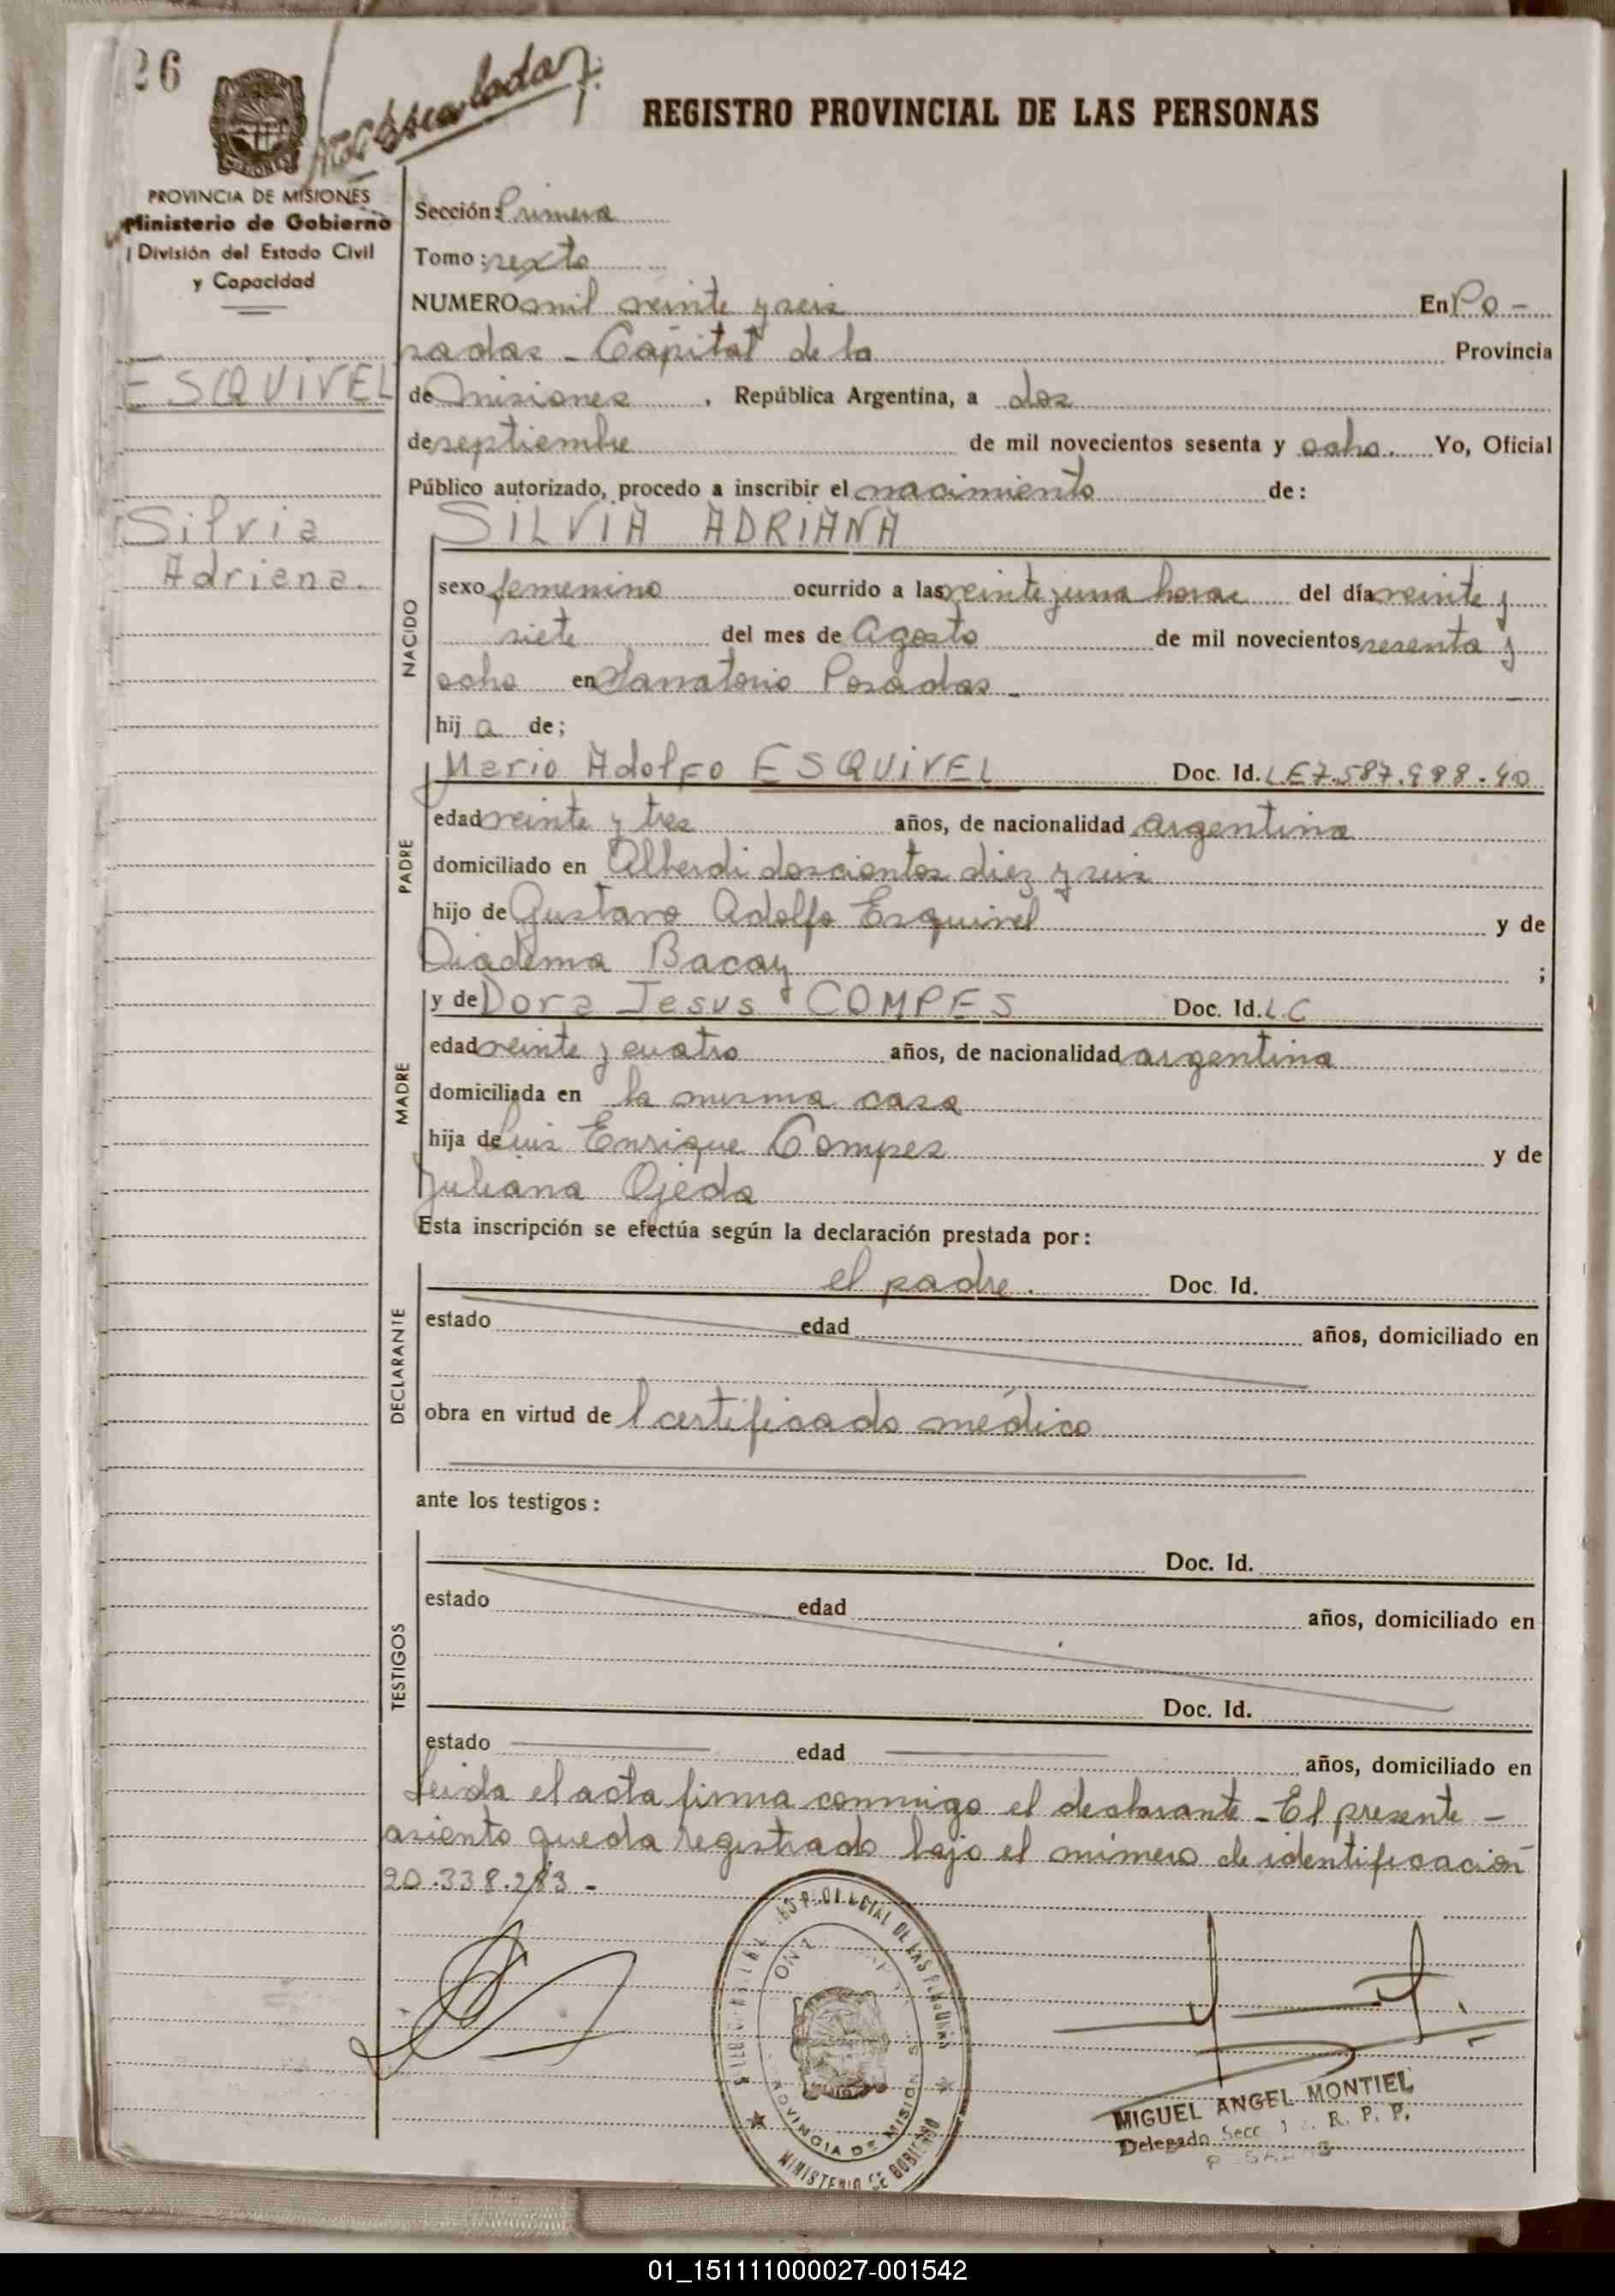 26
REGISTRO PROVINCIAL DE LAS PERSONAS
PROVINCIA DE MISIONES
Ministerio de Gobierno
División del Estado Civil
y Capacidad
ESQUIVEL
Silvia
Adriana.
Sección: Primera
Tomo: sexto
NUMERO mil veinte y seis En Po-
sadas - Capital de la Provincia
de Misiones, República Argentina, a dos
de septiembre de mil novecientos sesenta y ocho. Yo, Oficial
Público autorizado, procedo a inscribir el nacimiento de:
SILVIA ADRIANA
NACIDO
sexo femenino ocurrido a las veinte y una horas del día veinte y
siete del mes de Agosto de mil novecientos sesenta y
ocho en Sanatorio Posadas -
hij a de;
Mario Adolfo ESQUIVEL Doc. Id. LE 7.587.998.40
PADRE
edad veinte y tres años, de nacionalidad argentina
domiciliado en Alberdi doscientos diez y seis
hijo de Gustavo Adolfo Esquivel y de
Diadema Bacay ;
y de Dora Jesus COMPES Doc. Id. LC
MADRE
edad veinte y cuatro años, de nacionalidad argentina
domiciliada en la misma casa
hija de Luis Enrique Compes y de
Juliana Ojeda
Esta inscripción se efectúa según la declaración prestada por:
el padre. Doc. Id.
DECLARANTE
estado edad años, domiciliado en
obra en virtud de l certificado médico
ante los testigos:
Doc. Id.
TESTIGOS
estado edad años, domiciliado en
Doc. Id.
estado edad años, domiciliado en
Leida el acta firma conmigo el declarante - El presente -
asiento queda registrado bajo el número de identificación
20.338.283 -
DE LAS
PROVINCIA DE MISIONES
MINISTERIO DE GOBIERNO
MIGUEL ANGEL MONTIEL
Delegado Secc 1 R. P. P.
01_151111000027-001542